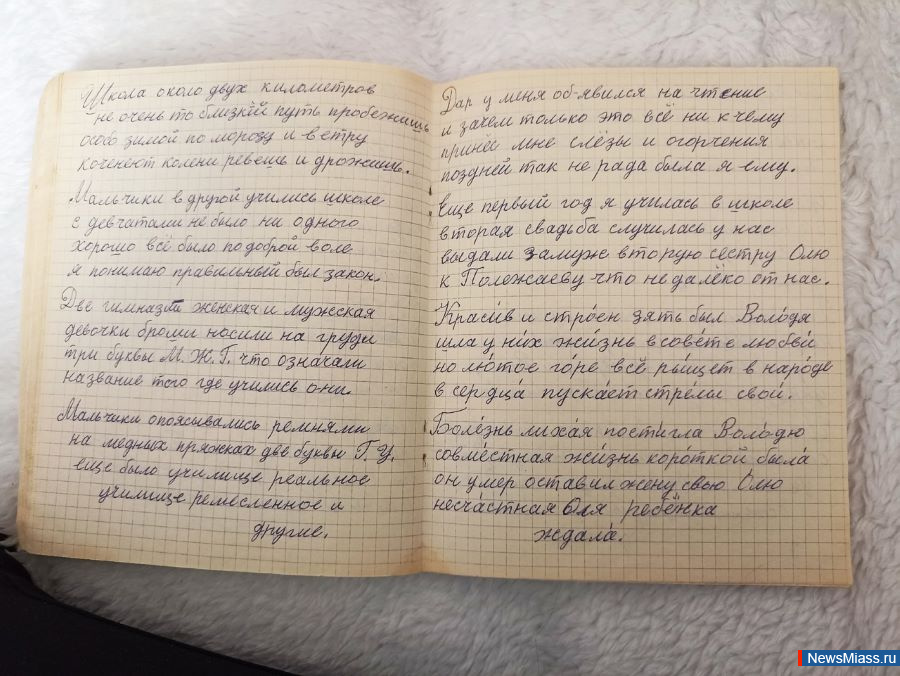 Школа около двух километров
не очень то близкий путь пробежишь
особо зимой по морозу и ветру
коченеют колени ревешь и дрожишь.
Мальчики в другой учились школе
с девчатами не было ни одного
хорошо всё было по доброй воле
я понимаю правильный был закон.
Две гимназии женская и мужская
девочки броши носили на груди
три буквы М.Ж.Г. что означали
название того где учились они.
Мальчики опоясывались ремнями
на медных пряжках две буквы Г. У.
еще было училище реальное
училище ремесленное и
другие.
Дар у меня об-явился на чтение
и зачем только это всё ни к чему
принёс мне слёзы и огорчения
поздней так не рада была я ему.
Еще первый год я училась в школе
вторая свадьба случилась у нас
выдали замуж вторую сестру Олю
к Полежаеву что не далёко от нас.
Краси́в и стро́ен зять был Воло́дя
шла у ни́х жи́знь в сове́те любви́
но лю́тое го́ре всё ры́щет в наро́де
в сердца́ пуска́ет стре́лы свои́.
Боле́знь лиха́я пости́гла Воло́дю
совме́стная жизнь короткой была́
он у́мер оставил жену свою Олю
несча́стная Оля ребёнка
ждала́.
NewsMiass.ru